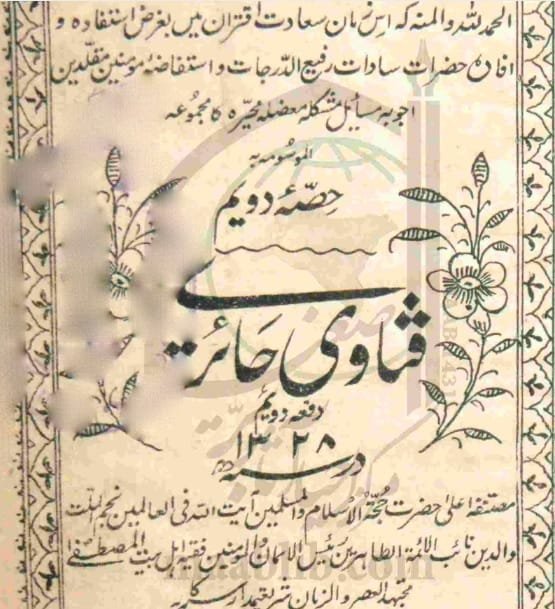 الحمد للہ والمنہ کہ اس زمان سعادت اقتران میں بغرض استفادہ و
افادۂ حضرات سادات رفیع الدرجات و استفاضۂ مومنین مقلدین
اجوبہ مسائل مشکلہ معضلہ محیرہ کا مجموعہ
الموسومہ بہ
حصۂ دویم
فتاوی حائری
دفعہ دویم
در سنہ ۱۳۲۸ھ
مصنفہ اعلیٰ حضرت حجۃ الاسلام والمسلمین آیت اللہ فی العالمین نجم الملت
والدین نائب الائمۃ الطاہرین رئیس الاسلام والمومنین فقیہ اہل بیت المصطفےٰ
مجتہد العصر والزمان شریعتمدار سرکار
maablib.com